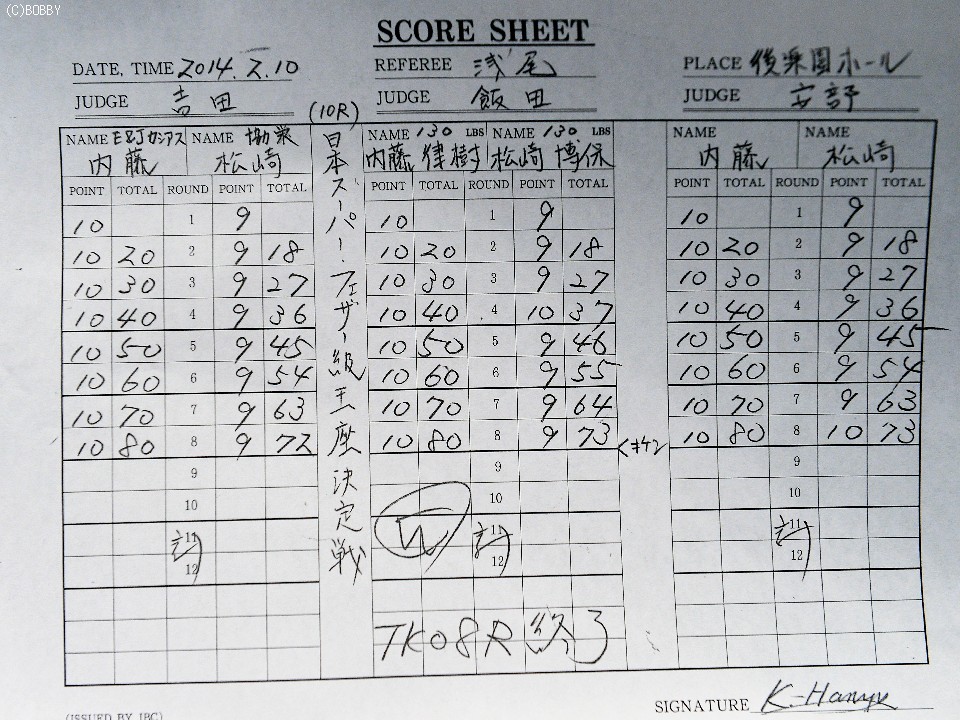 (C)BOBBY
SCORE SHEET
DATE, TIME 2014.2.10 REFEREE 浅尾 PLACE 後楽園ホール
JUDGE 吉田 JUDGE 飯田 JUDGE 安部
(10R)
日本スーパー・フェザー級王座決定戦
NAME カシアス NAME 協栄 NAME 130 LBS NAME 130 LBS NAME NAME
内藤 松崎 内藤 律樹 松崎 博保 内藤 松崎
POINT TOTAL ROUND POINT TOTAL POINT TOTAL ROUND POINT TOTAL POINT TOTAL ROUND POINT TOTAL
10 1 9 10 1 9 10 1 9
10 20 2 9 18 10 20 2 9 18 10 20 2 9 18
10 30 3 9 27 10 30 3 9 27 10 30 3 9 27
10 40 4 9 36 10 40 4 10 37 10 40 4 9 36
10 50 5 9 45 10 50 5 9 46 10 50 5 9 45
10 60 6 9 54 10 60 6 9 55 10 60 6 9 54
10 70 7 9 63 10 70 7 9 64 10 70 7 9 63
10 80 8 9 72 10 80 8 9 73 10 80 8 10 73
キケン
9 9 9
10 10 10
11 W 11 11
12 12 12
TKO8R終了
SIGNATURE K-Hanyu
(ISSUED BY JBC)